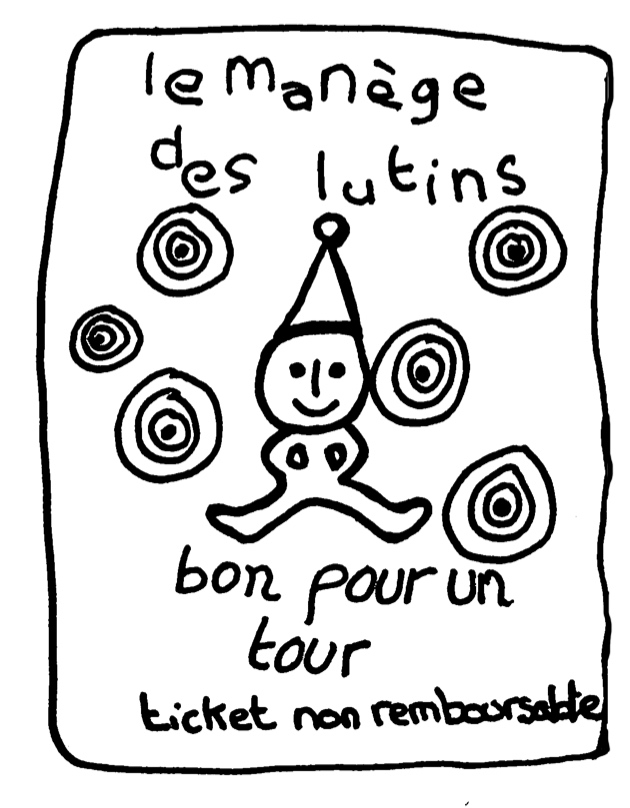 le manège
des lutins
bon pour un
tour
ticket non remboursable